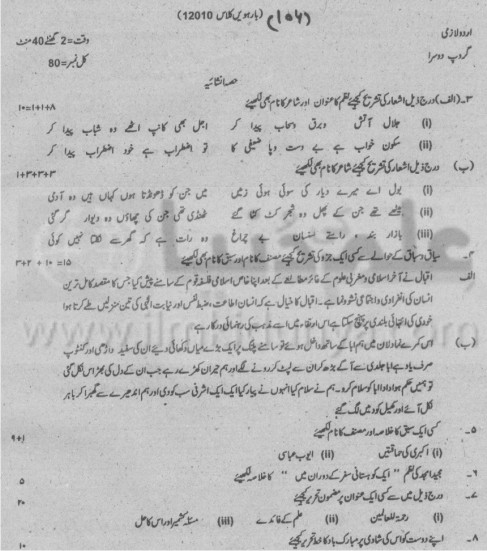 (۱۵۶) (بارہویں کلاس 12010)
اردو لازمی
وقت=2 گھنٹے 40 منٹ
گروپ دوسرا
کل نمبر=80
حصہ انشائیہ
۳۔ (الف) درج ذیل اشعار کی تشریح کیجیے نظم کا عنوان اور شاعر کا نام بھی لکھیے ۸+۱+۱=۱۰
(i) جلال آتش و برق و سحاب پیدا کر اجل بھی کانپ اٹھے وہ شباب پیدا کر
(ii) سکون خواب ہے بے دست و پا ضعیفی کا تو اضطراب ہے خود اضطراب پیدا کر
(ب) درج ذیل اشعار کی تشریح کیجیے شاعر کا نام بھی لکھیے ۳+۳+۳+۱
(i) بول اے میرے دیار کی سوئی ہوئی زمیں میں جن کو ڈھونڈتا ہوں کہاں ہیں وہ آدمی
(ii) میٹھے تھے جن کے پھل وہ شجر کٹ کٹا گئے ٹھنڈی تھی جن کی چھاؤں وہ دیوار گر گئی
(iii) بازار بند، راستے سنسان بے چراغ وہ رات ہے کہ گھر سے نکلتا نہیں کوئی
۴۔ سیاق و سباق کے حوالے سے کسی ایک جزو کی تشریح کیجیے مصنف کا نام اور سبق کا نام بھی لکھیے ۱۵= ۱۰ + ۲+۳
الف اقبال نے آخر اسلامی و مغربی علوم کے غائر مطالعے کے بعد اپنا خاص اسلامی فلسفہ قوم کے سامنے پیش کیا جس کا مقصد کامل ترین
انسان کی انفرادی و اجتماعی نشوونما ہے۔ اقبال کا خیال ہے کہ انسان اطاعت، ضبط نفس اور نیابت الٰہی کی تین منزلیں طے کرتا ہوا
خودی کی انتہائی بلندی پر پہنچ سکتا ہے اس ارتقاء میں اسے مذہب کی رہنمائی درکار ہے
(ب) اس کمرے نما دالان میں ہم ابا کے ساتھ داخل ہوئے تو سامنے پلنگ پر ایک بڑے میاں دکھائی دیے ان کی سفید داڑھی اور کنٹوپ
صرف یاد ہے ابا جلدی سے آگے بڑھ کر ان سے لپٹ کر رونے لگے اور ہم حیران کھڑے رہے جب ان کے دل کی بھڑاس نکل گئی
تو ہمیں حکم ہوا دادا ابا کو سلام کرو۔ ہم نے سلام کیا انہوں نے پیار کیا ایک ایک اشرفی سب کو دی اور ہم اندھیرے سے گھبرا کر باہر
نکل آئے اور کھیل کود میں لگ گئے
۵۔ کسی ایک سبق کا خلاصہ اور مصنف کا نام لکھیے ۹+۱
(i) اکبری کی حماقتیں (ii) ایوب عباسی
۶۔ مجید امجد کی نظم "ایک کوہستانی سفر کے دوران میں" کا خلاصہ لکھیے ۵
۷۔ درج ذیل میں سے کسی ایک عنوان پر مضمون تحریر کیجیے ۲۰
(i) رحمۃ للعالمین (ii) علم کے فائدے (iii) مسئلہ کشمیر اور اس کا حل
۸۔ اپنے دوست کو اس کی شادی پر مبارک باد کا خط تحریر کیجیے ۱۰